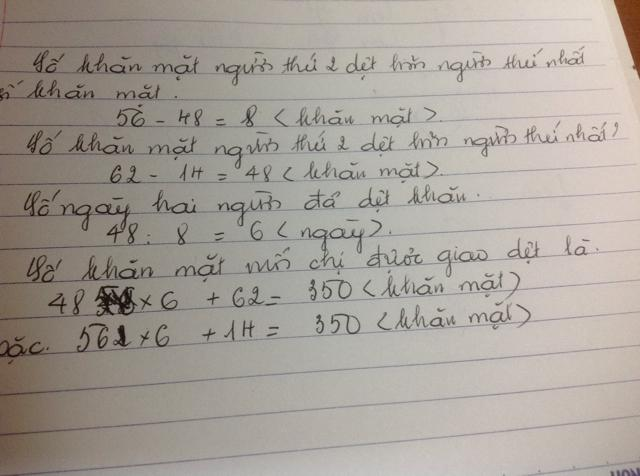 Số khăn mặt người thứ 2 dệt hơn người thứ nhất
số khăn mặt.
56 - 48 = 8 < khăn mặt >.
Số khăn mặt người thứ 2 dệt hơn người thứ nhất?
62 - 14 = 48 < khăn mặt >.
Số ngày hai người đã dệt khăn.
48 : 8 = 6 < ngày >.
Số khăn mặt mỗi chị được giao dệt là.
48 × 6 + 62 = 350 < khăn mặt >
oặc. 56 × 6 + 14 = 350 < khăn mặt >